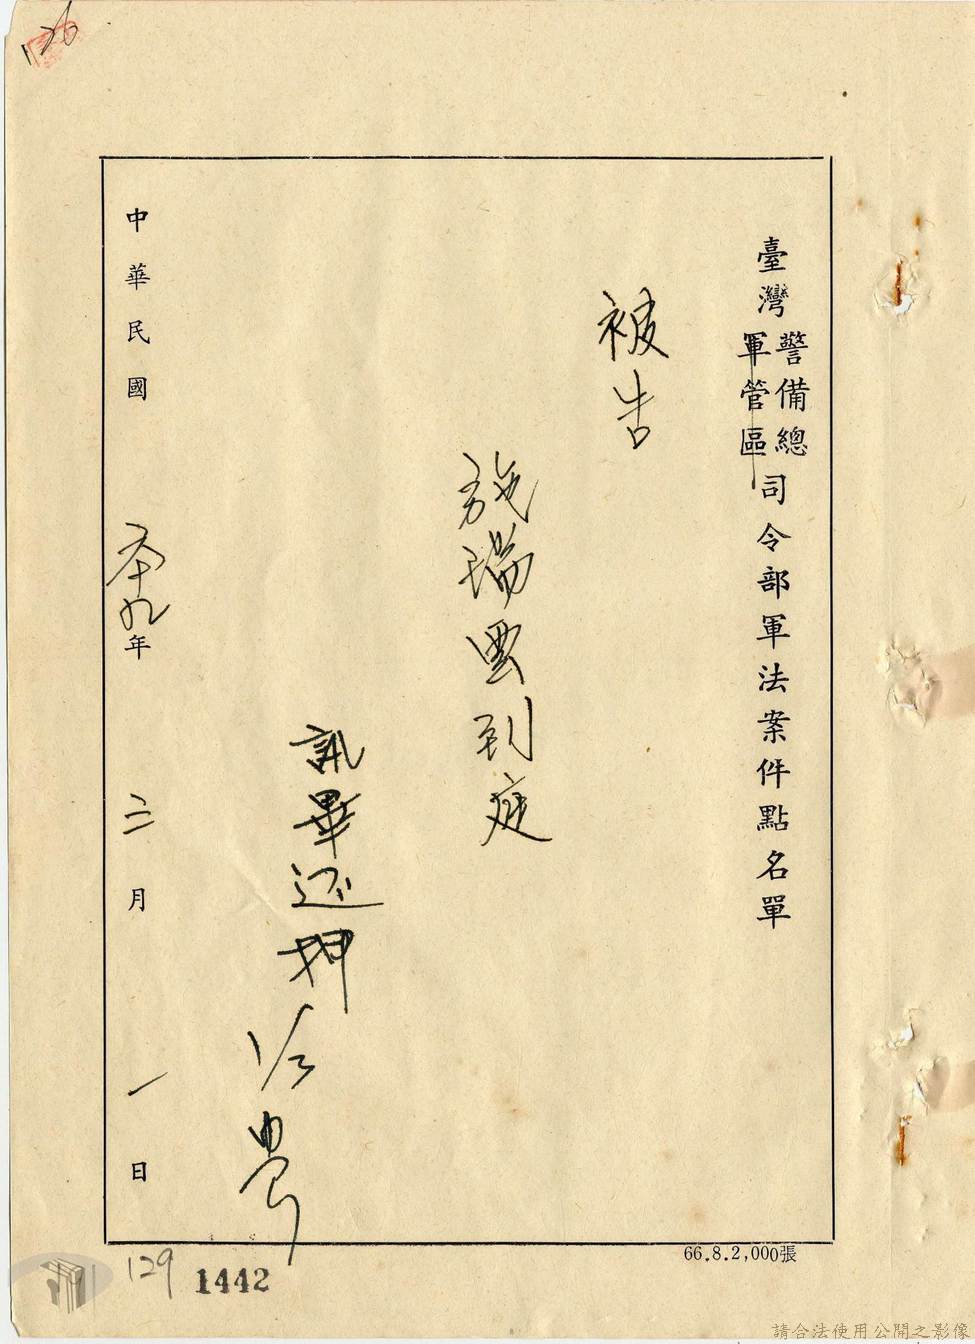 126
臺灣警備總司令部軍法案件點名單
軍管區
被告
施瑞雲到庭
訊畢還押
中華民國 六十九年 二月 一日
66.8.2,000張
129
1442
請合法使用公開之影像